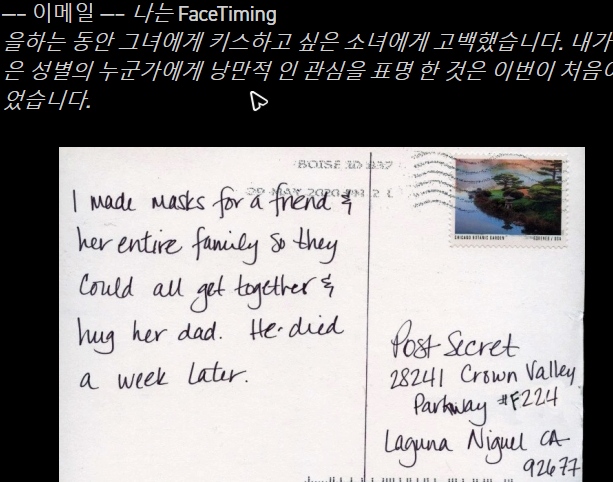 –– 이메일 –– 나는 FaceTiming
을하는 동안 그녀에게 키스하고 싶은 소녀에게 고백했습니다. 내가
은 성별의 누군가에게 낭만적 인 관심을 표명 한 것은 이번이 처음이
었습니다.
BOISE ID 837
29 MAY 2020 PM 2 L
I made masks for a friend &
her entire family so they
could all get together &
hug her dad. He died
a week later.
CHICAGO BOTANIC GARDEN
FOREVER / USA
Post Secret
28241 Crown Valley
Parkway #F224
Laguna Niguel CA
92677